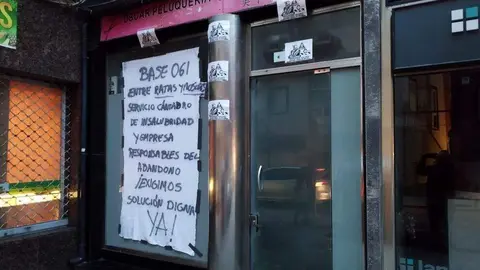 OSCAR PELUQUERIA
BASE 061
ENTRE RATAS Y
SERVICIO CÁNTABRO
DE INSALUBRIDAD
Y EMPRESA
RESPONSABLES DEL
ABANDONO
¡EXIGIMOS
SOLUCIÓN DIGNA
YA!